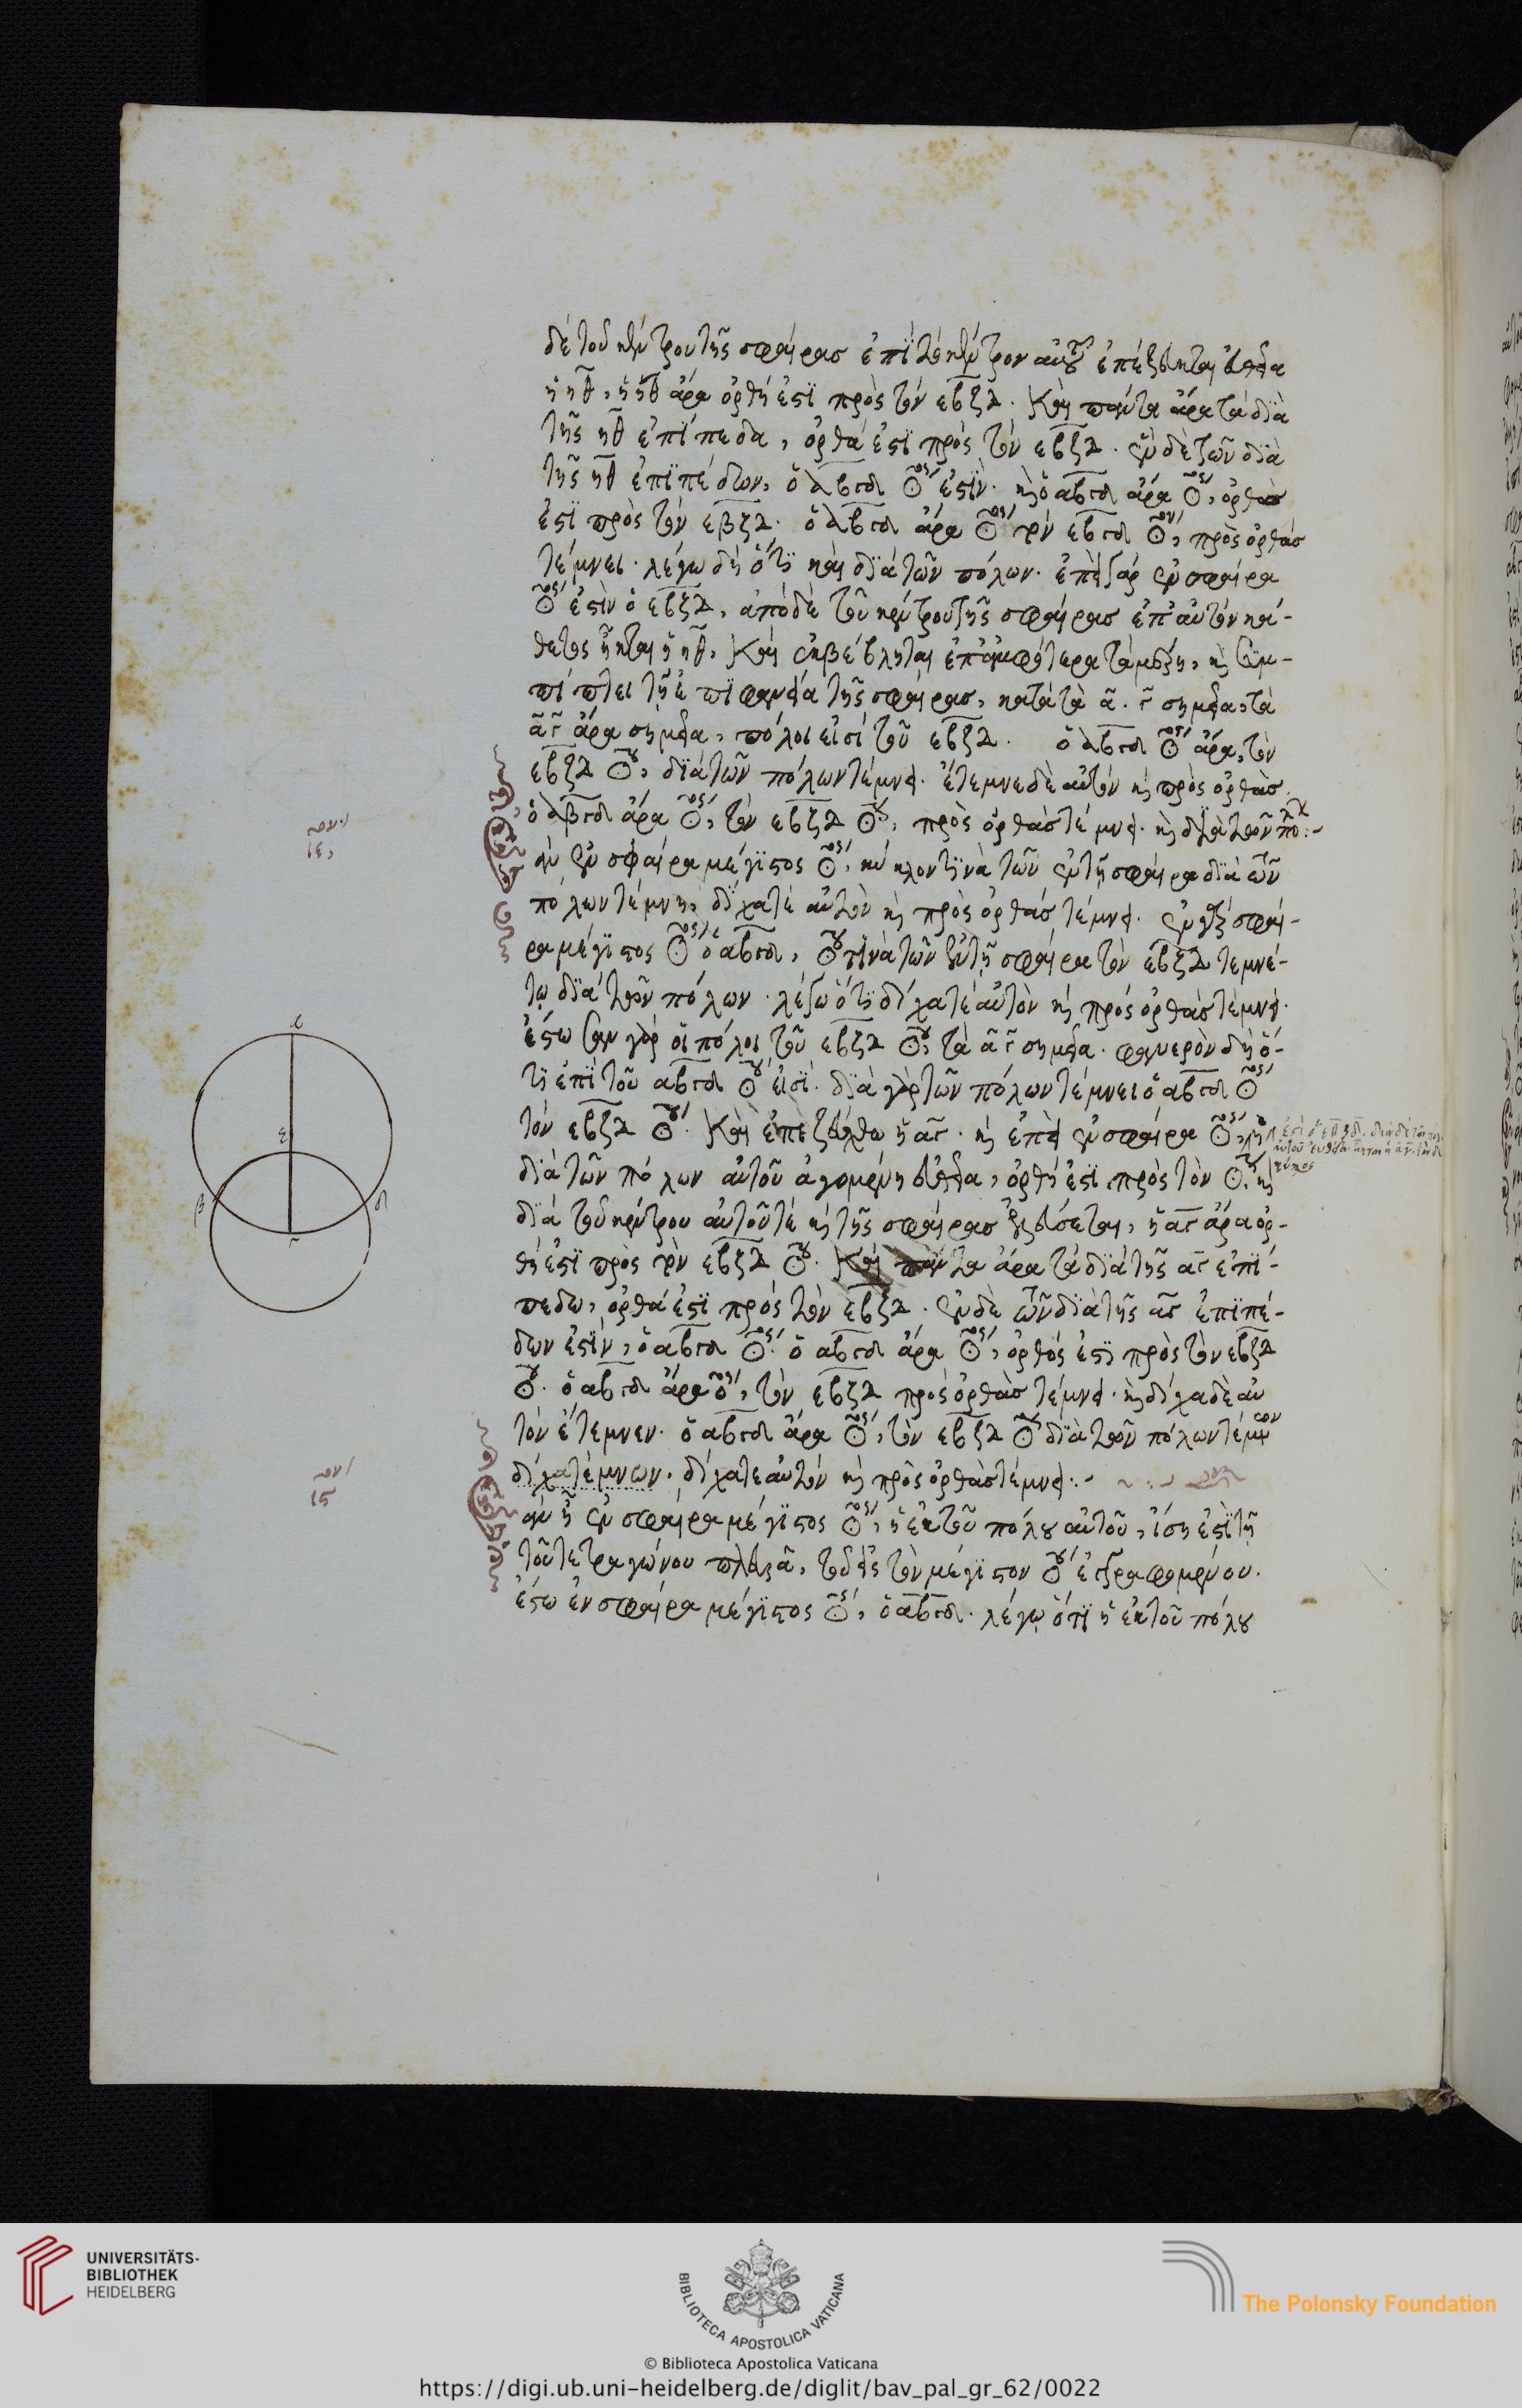 δὲ τοῦ κέντρου τῆς σφαίρας ἐπὶ τὸ κέντρον αὐτοῦ ἐπέζευκται εὐθεῖα
ἡ ηθ, ἡ ηθ ἄρα ὀρθή ἐστι πρὸς τὸν εβζδ. Καὶ πάντα ἄρα τὰ διὰ
τῆς ηθ ἐπίπεδα, ὀρθά ἐστι πρὸς τὸν εβζδ. ἓν δὲ τῶν διὰ
τῆς ηθ ἐπιπέδων, ὁ αβγδ ☉ος ἐστὶν. κὶ ὁ αβγδ ἄρα ☉ος, ὀρθὸς
ἐστι πρὸς τὸν εβζδ. ὁ αβγδ ἄρα ☉ος τὸν εβγδ ☉ον, πρὸς ὀρθάς
τέμνει. λέγω δὴ ὅτι καὶ διὰ τῶν πόλων. ἐπεὶ γὰρ ἐν σφαίρα
☉ος ἐστὶν ὁ εβζδ, ἀπὸ δὲ τοῦ κέντρου τῆς σφαίρας ἐπ' αὐτὸν κά-
θετος ἦκται ἡ ηθ, Καὶ ἐκβέβληται ἐπ' ἀμφότερα τὰ μέρη, κὶ συμ-
πίπτει τῇ ἐπιφανεία τῆς σφαίρας, κατὰ τὰ α. γ σημεῖα, τὰ
α γ ἄρα σημεῖα, πόλοι εἰσί τοῦ εβζδ. ὁ αβγδ ☉ος ἄρα, τὸν
εβζδ ☉ον, διὰ τῶν πόλων τέμνει. ἔτεμνε δὲ αὐτὸν κὶ πρὸς ὀρθὰς.
ὁ αβγδ ἄρα ☉ος, τὸν εβζδ ☉ον, πρὸς ὀρθὰς τέμνει. κὶ διὰ τῶν πολ:-
ιε
ἐὰν ἐν σφαίρα μέγιστος ☉ος, κύκλον τινὰ τῶν ἐν τῇ σφαίρα διὰ τῶν
πόλων τέμνη, δίχα τὲ αὐτὸν κὶ πρὸς ὀρθάς τέμνει. ἐν γὰρ σφαί-
ρα μέγιστος ☉ος ὁ αβγδ, ☉ον τινὰ τῶν ἐν τῇ σφαίρα τὸν εβζδ τεμνέ-
τω διὰ τῶν πόλων. λέγω ὅτι δίχα τὲ αὐτὸν κὶ πρὸς ὀρθὰς τέμνει.
ἔστωσαν γὰρ οἱ πόλοι τοῦ εβζδ ☉ου, τὰ α γ σημεῖα. φανερὸν δὴ ὅ-
τι ἐπὶ τοῦ αβγδ ☉ου εἰσί. διὰ γὰρ τῶν πόλων τέμνει ὁ αβγδ ☉ος
τὸν εβζδ ☉ον. Καὶ ἐπεζεύχθω ἡ αγ. κὶ ἐπεὶ ἐν σφαίρα ☉ος,
ἐστὶ ὁ εβζδ. διὰ δὲ τῶν πόλ
αὐτοῦ εὐθεῖα ἦκται ἡ αγ.
διὰ τῶν πόλων αὐτοῦ ἀγομένη εὐθεῖα, ὀρθή ἐστι πρὸς τὸν ☉ον, κὶ
διὰ τοῦ κέντρου αὐτοῦ τὲ κὶ τῆς σφαίρας ἐλεύσεται, ἡ αγ ἄρα ὀρ-
θή ἐστι πρὸς τὸν εβζδ ☉ον. Καὶ πάντα ἄρα τὰ διὰ τῆς αγ ἐπί-
πεδα, ὀρθά ἐστι πρὸς τὸν εβζδ. ἓν δὲ τῶν διὰ τῆς αγ ἐπιπέ-
δων ἐστὶν, ὁ αβγδ ☉ος. ὁ αβγδ ἄρα ☉ος, ὀρθός ἐστι πρὸς τὸν εβζδ
☉ον. ὁ αβγδ ἄρα ☉ος, τὸν εβζδ πρὸς ὀρθὰς τέμνει. κὶ δίχα δὲ αὐ
τὸν ἔτεμνεν. ὁ αβγδ ἄρα ☉ος, τὸν εβζδ ☉ον διὰ τῶν πόλων τέμνων
δίχα τέμνων. δίχα τε αὐτὸν κὶ πρὸς ὀρθὰς τέμνει:-
ιϛ
ἐὰν ᾖ ἐν σφαίρα μέγιστος ☉ος, ἡ ἐκ τοῦ πόλου αὐτοῦ, ἴση ἐστὶ τῇ
τοῦ τετραγώνου πλευρᾶ, τοῦ εἰς τὸν μέγιστον ☉ον ἐγγραφομένου.
ἔστω ἐν σφαίρα μέγιστος ☉ος, ὁ αβγδ. λέγω ὅτι ἡ ἐκ τοῦ πόλου
α
ε
β
δ
γ
UNIVERSITÄTS-
BIBLIOTHEK
HEIDELBERG
BIBLIOTECA APOSTOLICA VATICANA
The Polonsky Foundation
© Biblioteca Apostolica Vaticana
https://digi.ub.uni-heidelberg.de/diglit/bav_pal_gr_62/0022